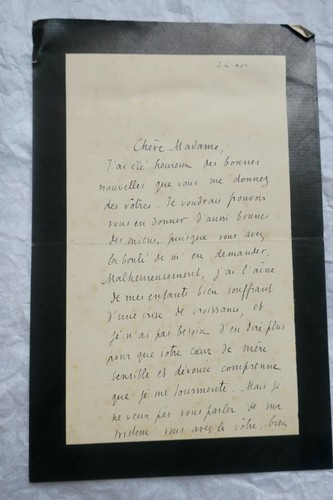 24 nov
Chère Madame,
J'ai été heureux des bonnes
nouvelles que vous me donnez
des vôtres. Je voudrais pouvoir
vous en donner d'aussi bonnes
des miens, puisque vous avez
la bonté de m'en demander.
Malheureusement, j'ai l'aîné
de mes enfants bien souffrant
d'une crise de croissance, et
je n'ai pas besoin d'en dire plus
pour que votre cœur de mère
sensible et dévouée comprenne
que je me tourmente. Mais je
ne veux pas vous parler de ma
tristesse : vous avez la vôtre, bien